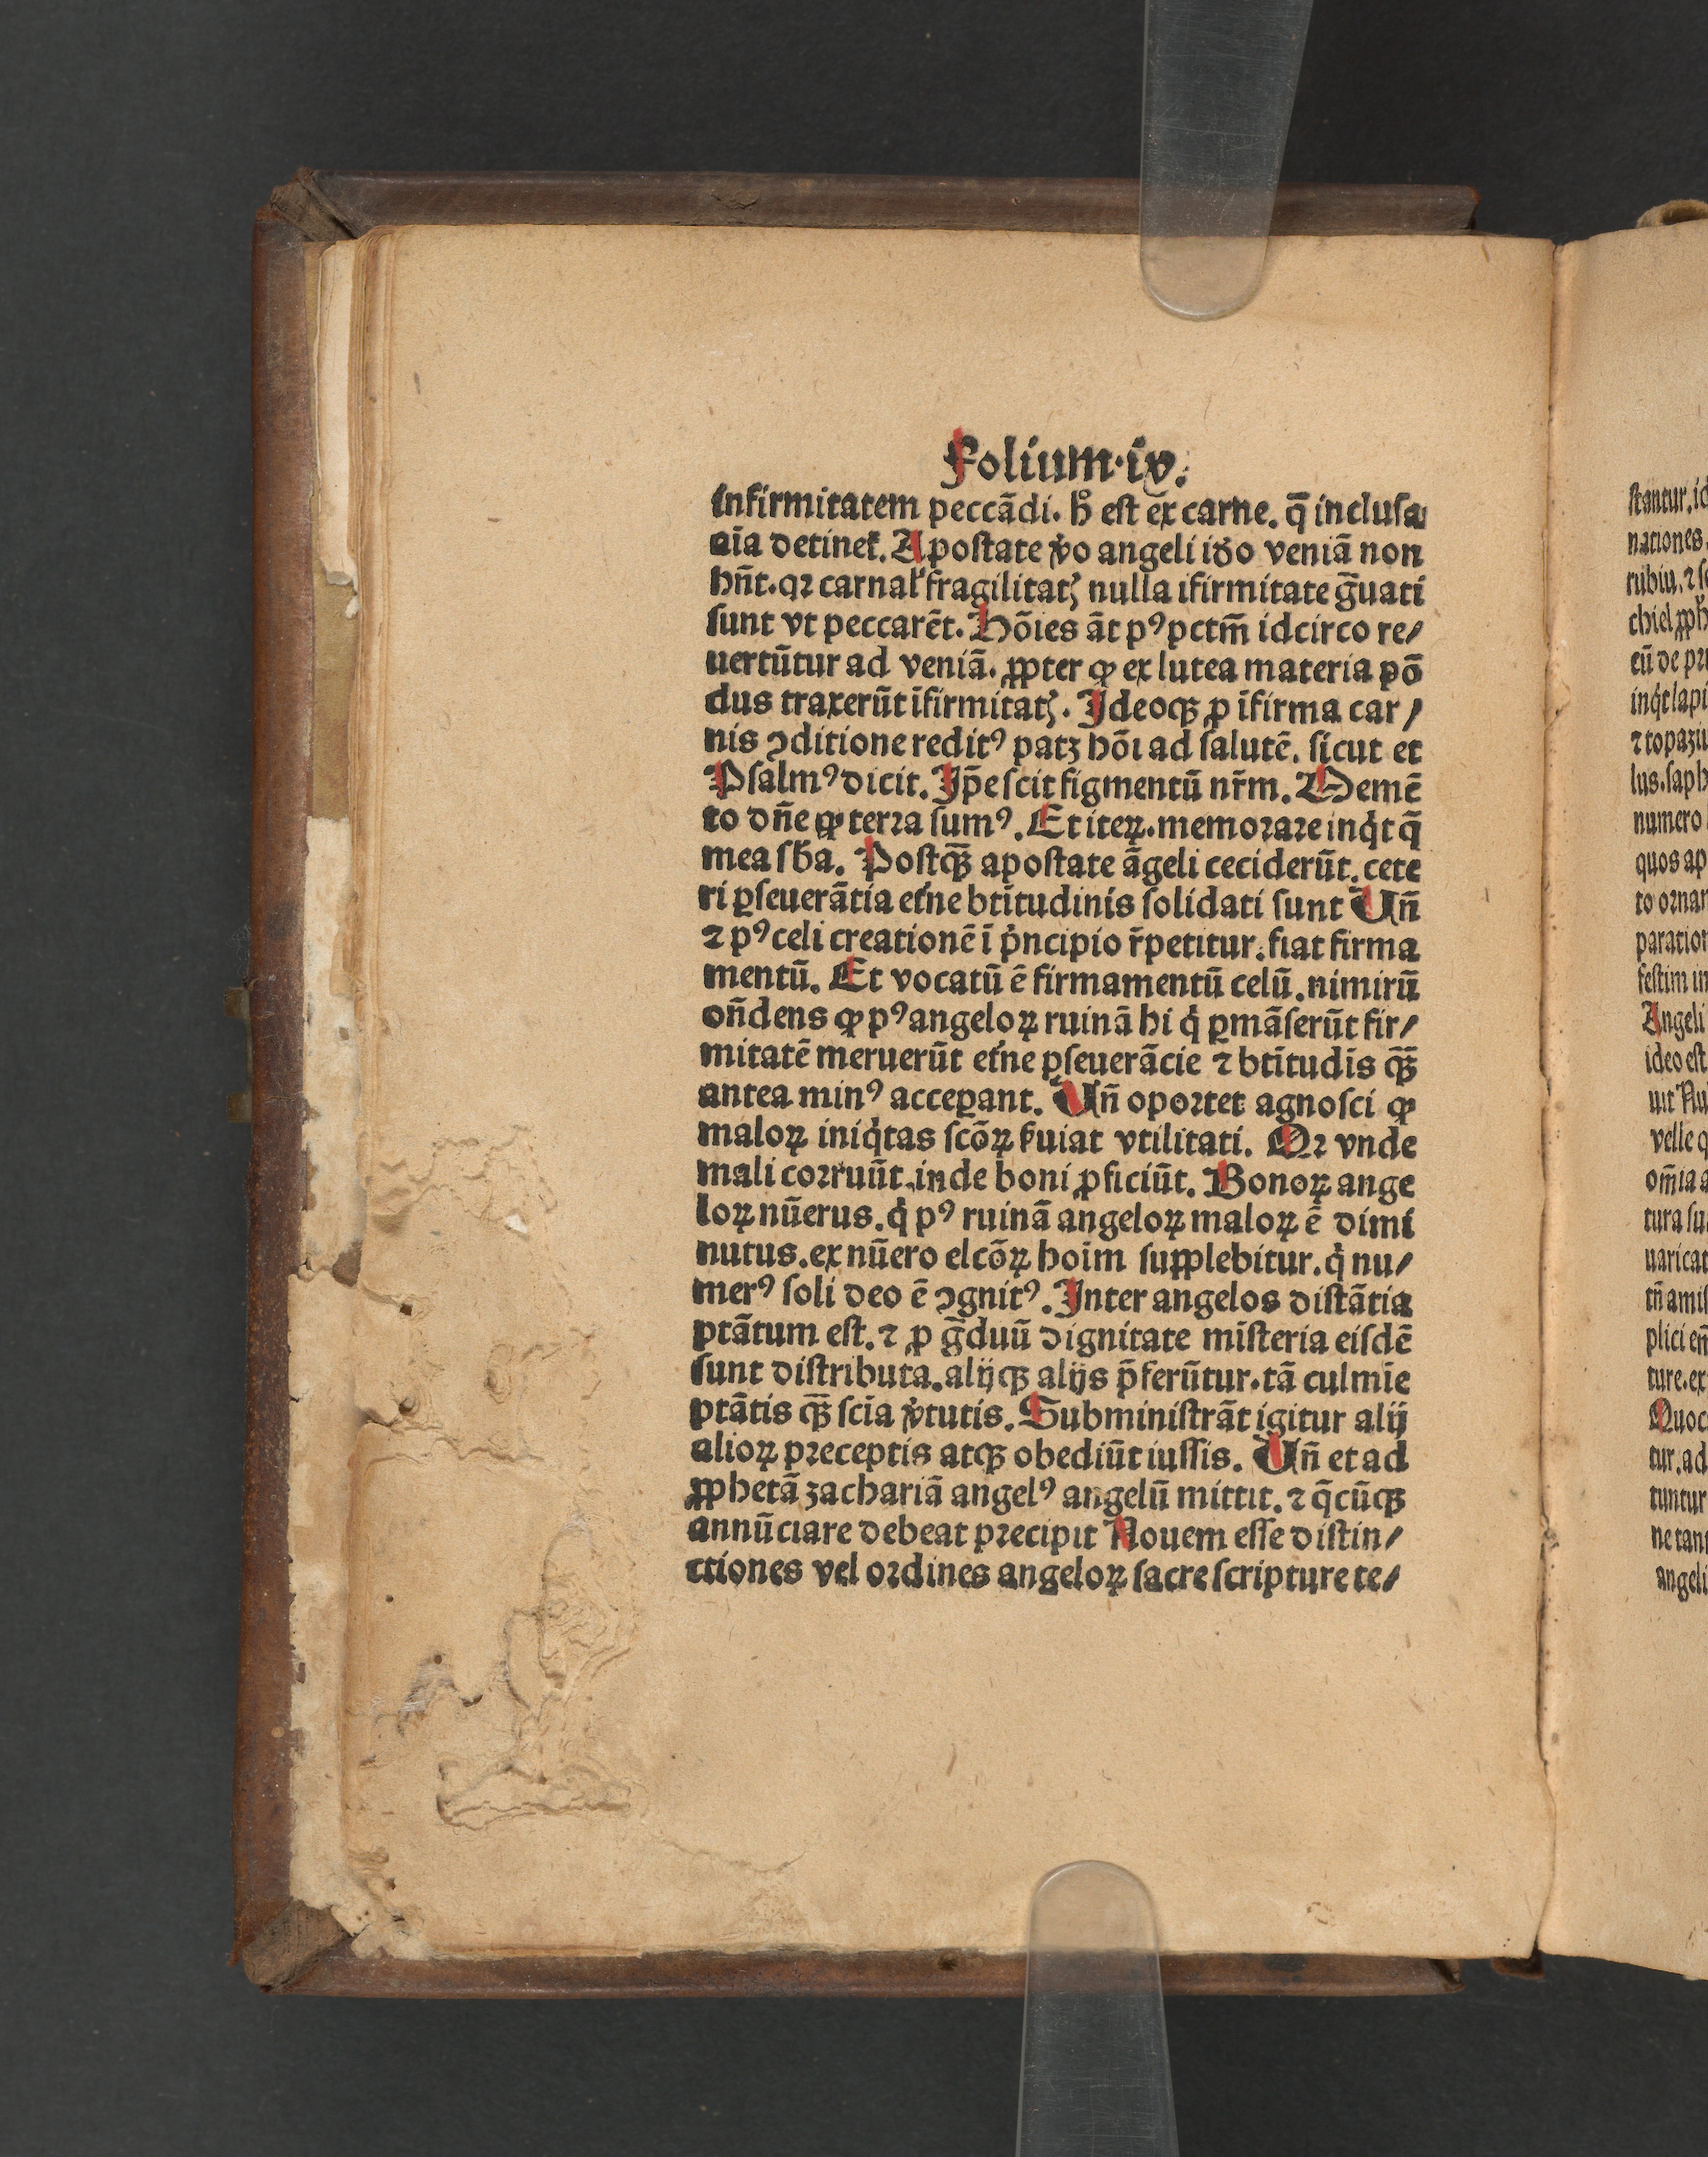 Folium·iv.
infirmitatem peccãdi. hͦ est ex carne. q̃ inclusa
aĩa detinet̉. Apostate ꝟo angeli iðo veniã non
hñt. qꝛ carnal̉ fragilitatꝭ nulla ĩfirmitate g̃uati
sunt vt peccarẽt. Hõies ãt pꝰ pctm̃ idcirco re/
uertũtur ad veniã. ꝓpter ꝙ ex lutea materia põ
dus traxerũt ĩfirmitatꝭ. Ideoqꝫ ꝓ ĩfirma car/
nis ꝯditione reditꝰ patꝫ hõi ad salutẽ. sicut et
Psalmꝰ dicit. Ip̃e scit figmentũ nr̃m. Memẽ
to dñe ꝙ terra sumꝰ. Et iteꝝ. memorare inq̇t q̃
mea sb̃a. Postqꝫ̃ apostate ãgeli ceciderũt. cete
ri ꝑseuerãtia et̉ne btĩtudinis solidati sunt Vñ
⁊ pꝰ celi creationẽ ĩ p̉ncipio r̃petitur. fiat firma
mentũ. Et vocatũ ẽ firmamentũ celũ. nimirũ
oñdens ꝙ pꝰ angeloꝝ ruinã hi q̇ ꝑmãserũt fir/
mitatẽ meruerũt et̉ne ꝑseuerãcie ⁊ btĩtudis qꝫ̃
antea minꝰ acceꝑant. Vñ oportet agnosci ꝙ
maloꝝ iniq̇tas scõꝝ s̉uiat vtilitati. Qꝛ vnde
mali corruũt. inde boni ꝓficiũt. Bonoꝝ ange
loꝝ nũerus. q̇ pꝰ ruinã angeloꝝ maloꝝ ẽ dimi
nutus. ex nũero elcõꝝ hoĩm supplebitur. q̇ nu/
merꝰ soli deo ẽ ꝯgnitꝰ. Inter angelos distãtia
ptãtum est. ⁊ ꝓ g̃duũ dignitate mĩsteria eisdẽ
sunt distributa. alijqꝫ alijs p̃ferũtur. tã culmĩe
ptãtis qꝫ̃ scĩa ꝟtutis. Subministrãt igitur alij
alioꝝ preceptis atqꝫ obediũt iussis. Vñ et ad
ꝓphetã zachariã angelꝰ angelũ mittit. ⁊ q̃cũqꝫ
annũciare debeat precipit Nouem esse distin/
ctiones vel ordines angeloꝝ sacre scripture te/